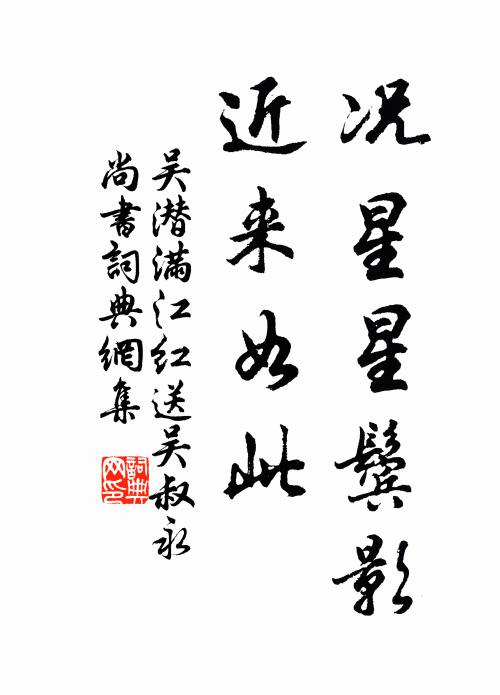 况星星鬓影
近来如此
吴潜满江红送吴叔永
尚書詞典網集
詞典网印